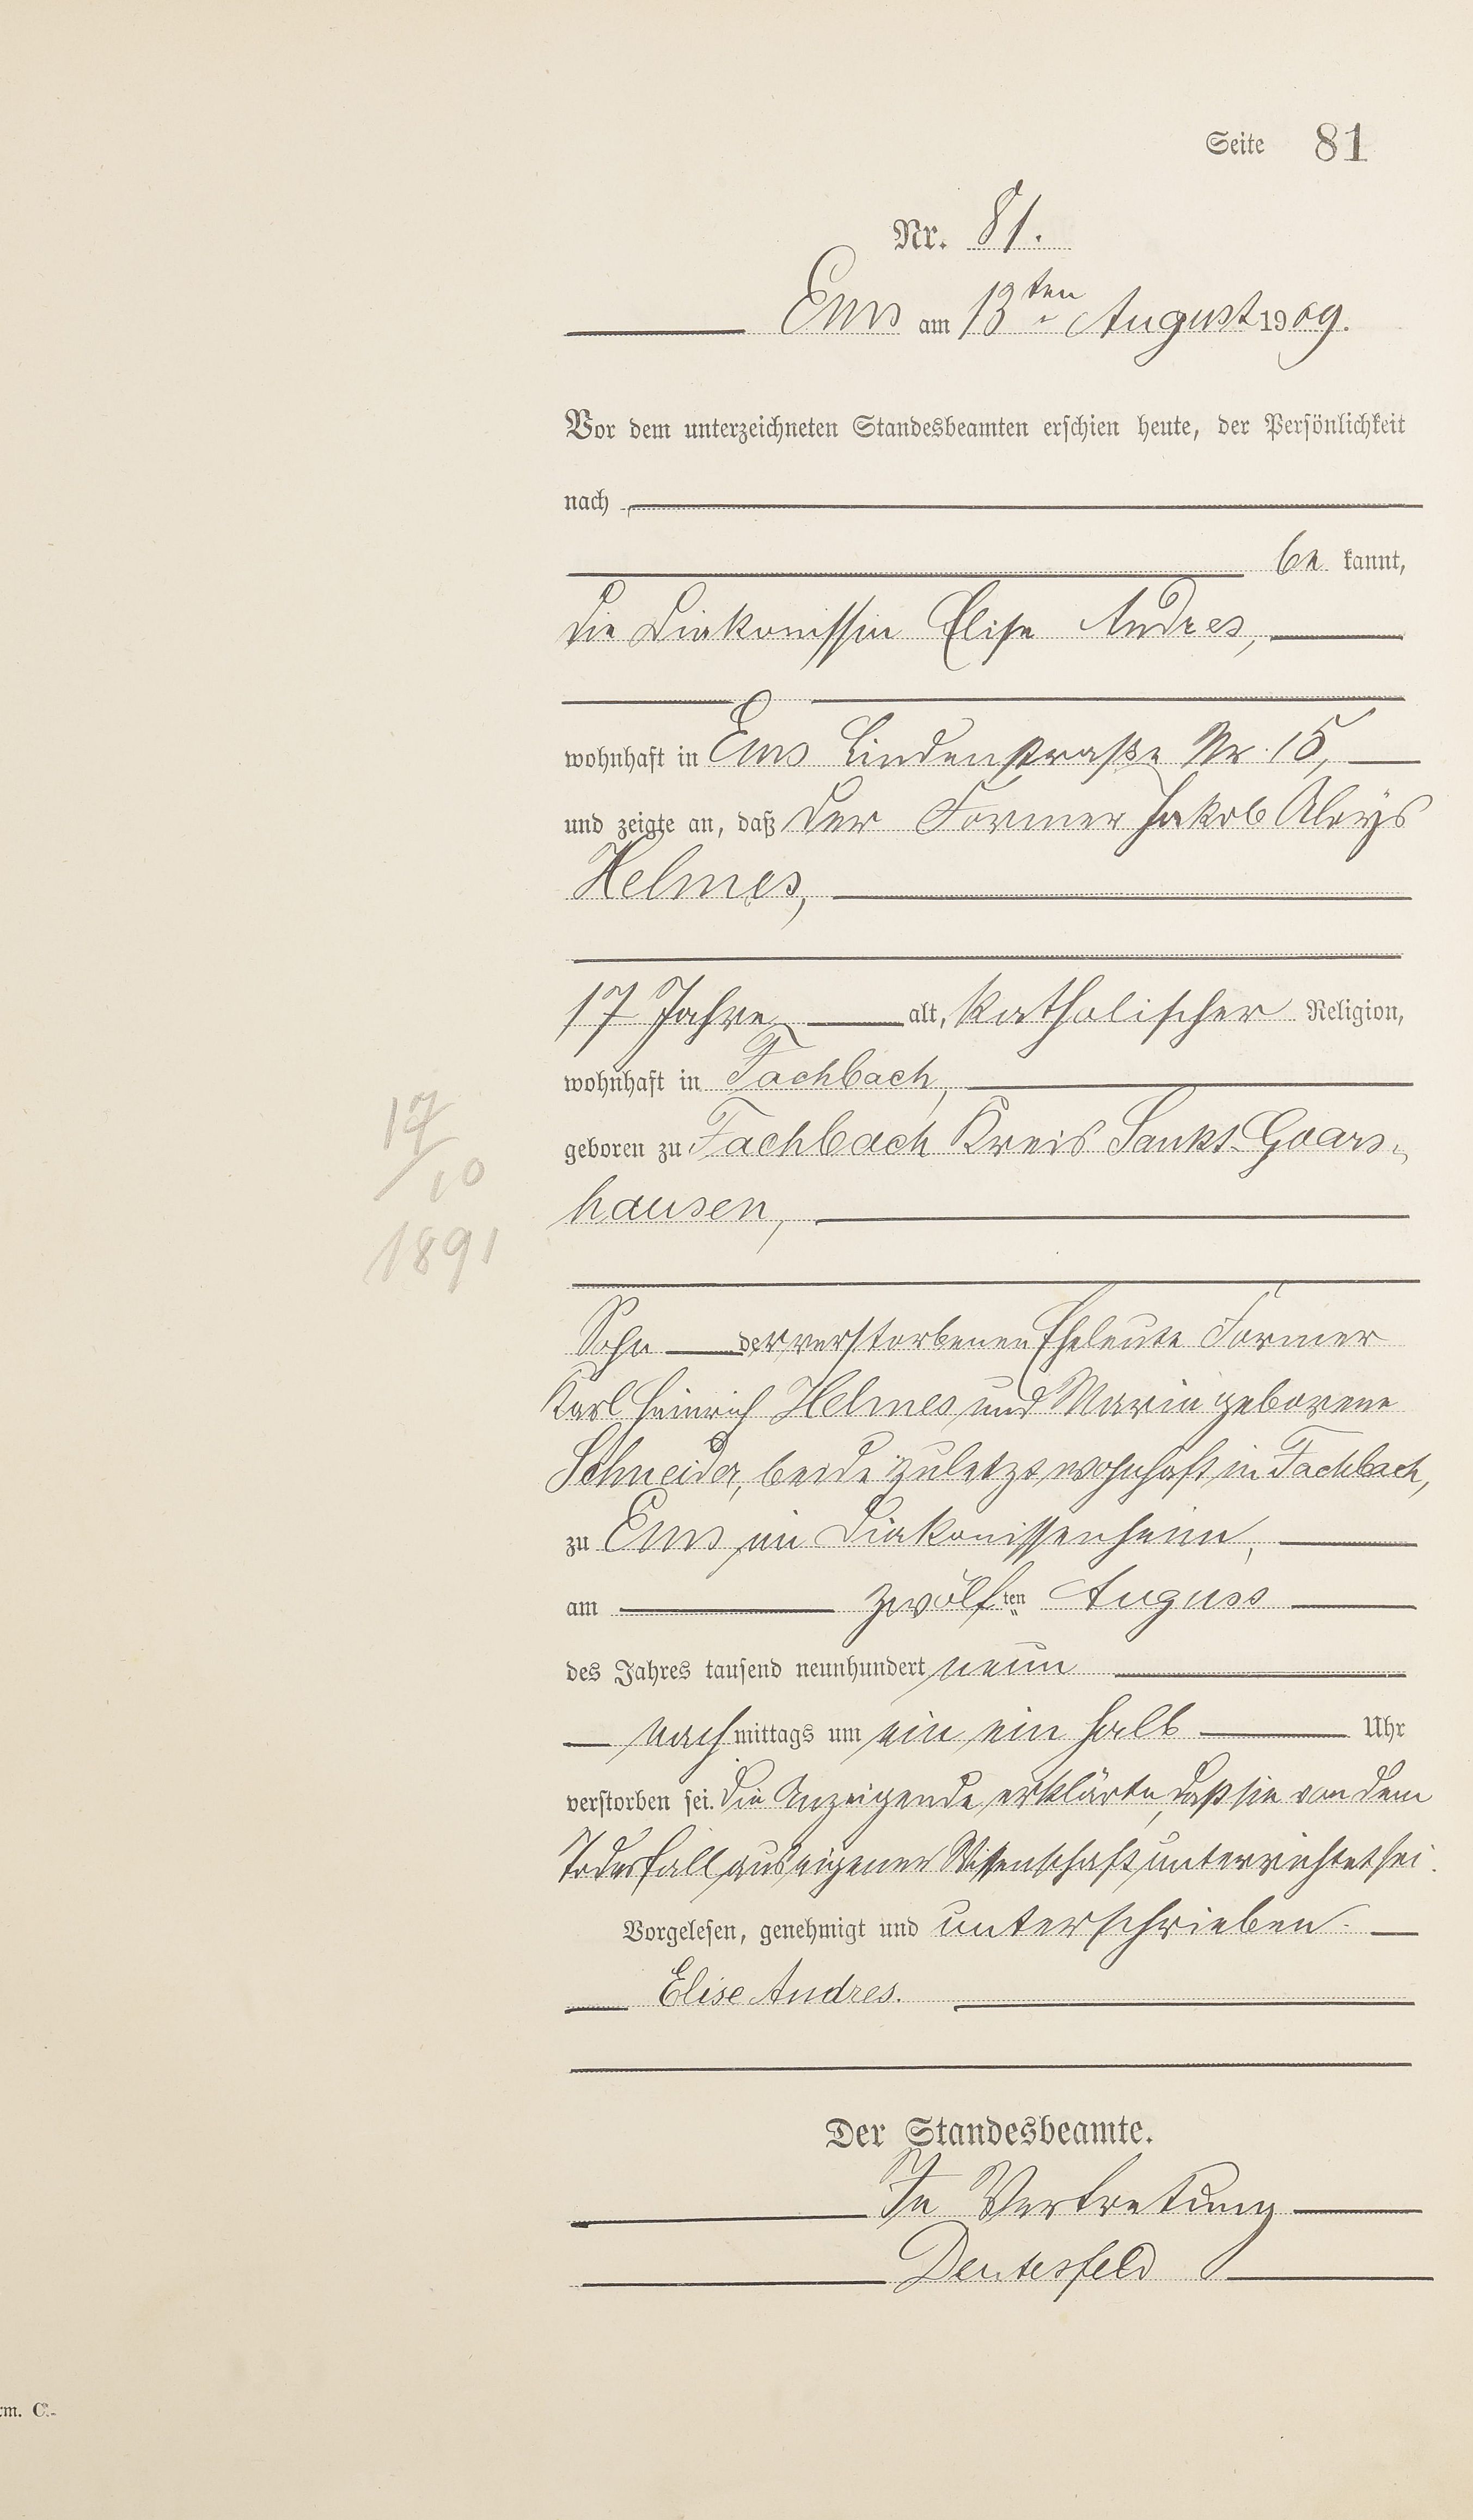 Seite 81
Nr. 81.
Ems am 13ten August 1909.
Vor dem unterzeichneten Standesbeamten erschien heute, der Persönlichkeit
nach
be kannt,
die Diakonissin Elise Andres,
wohnhaft in Ems Lindenstraße Nr. 15,
und zeigte an, daß der Former Jakob Aloys
Helmes,
17 Jahre alt, katholischer Religion,
wohnhaft in Fachbach,
geboren zu Fachbach Kreis Sankt Goars-
hausen,
17
/10
1891
Sohn der verstorbenen Eheleute Former
Karl Heinrich Helmes und Maria geborene
Schneider, beide zuletzt wohnhaft in Fachbach,
zu Ems im Diakonissenheim,
am zwölften August
des Jahres tausend neunhundert neun
nachmittags um ein ein halb Uhr
verstorben sei. Die Anzeigende erklärte, daß sie von dem
Todesfall aus eigener Wissenschaft unterrichtet sei.
Vorgelesen, genehmigt und unterschrieben.
Elise Andres.
Der Standesbeamte.
In Vertretung
rm. C.